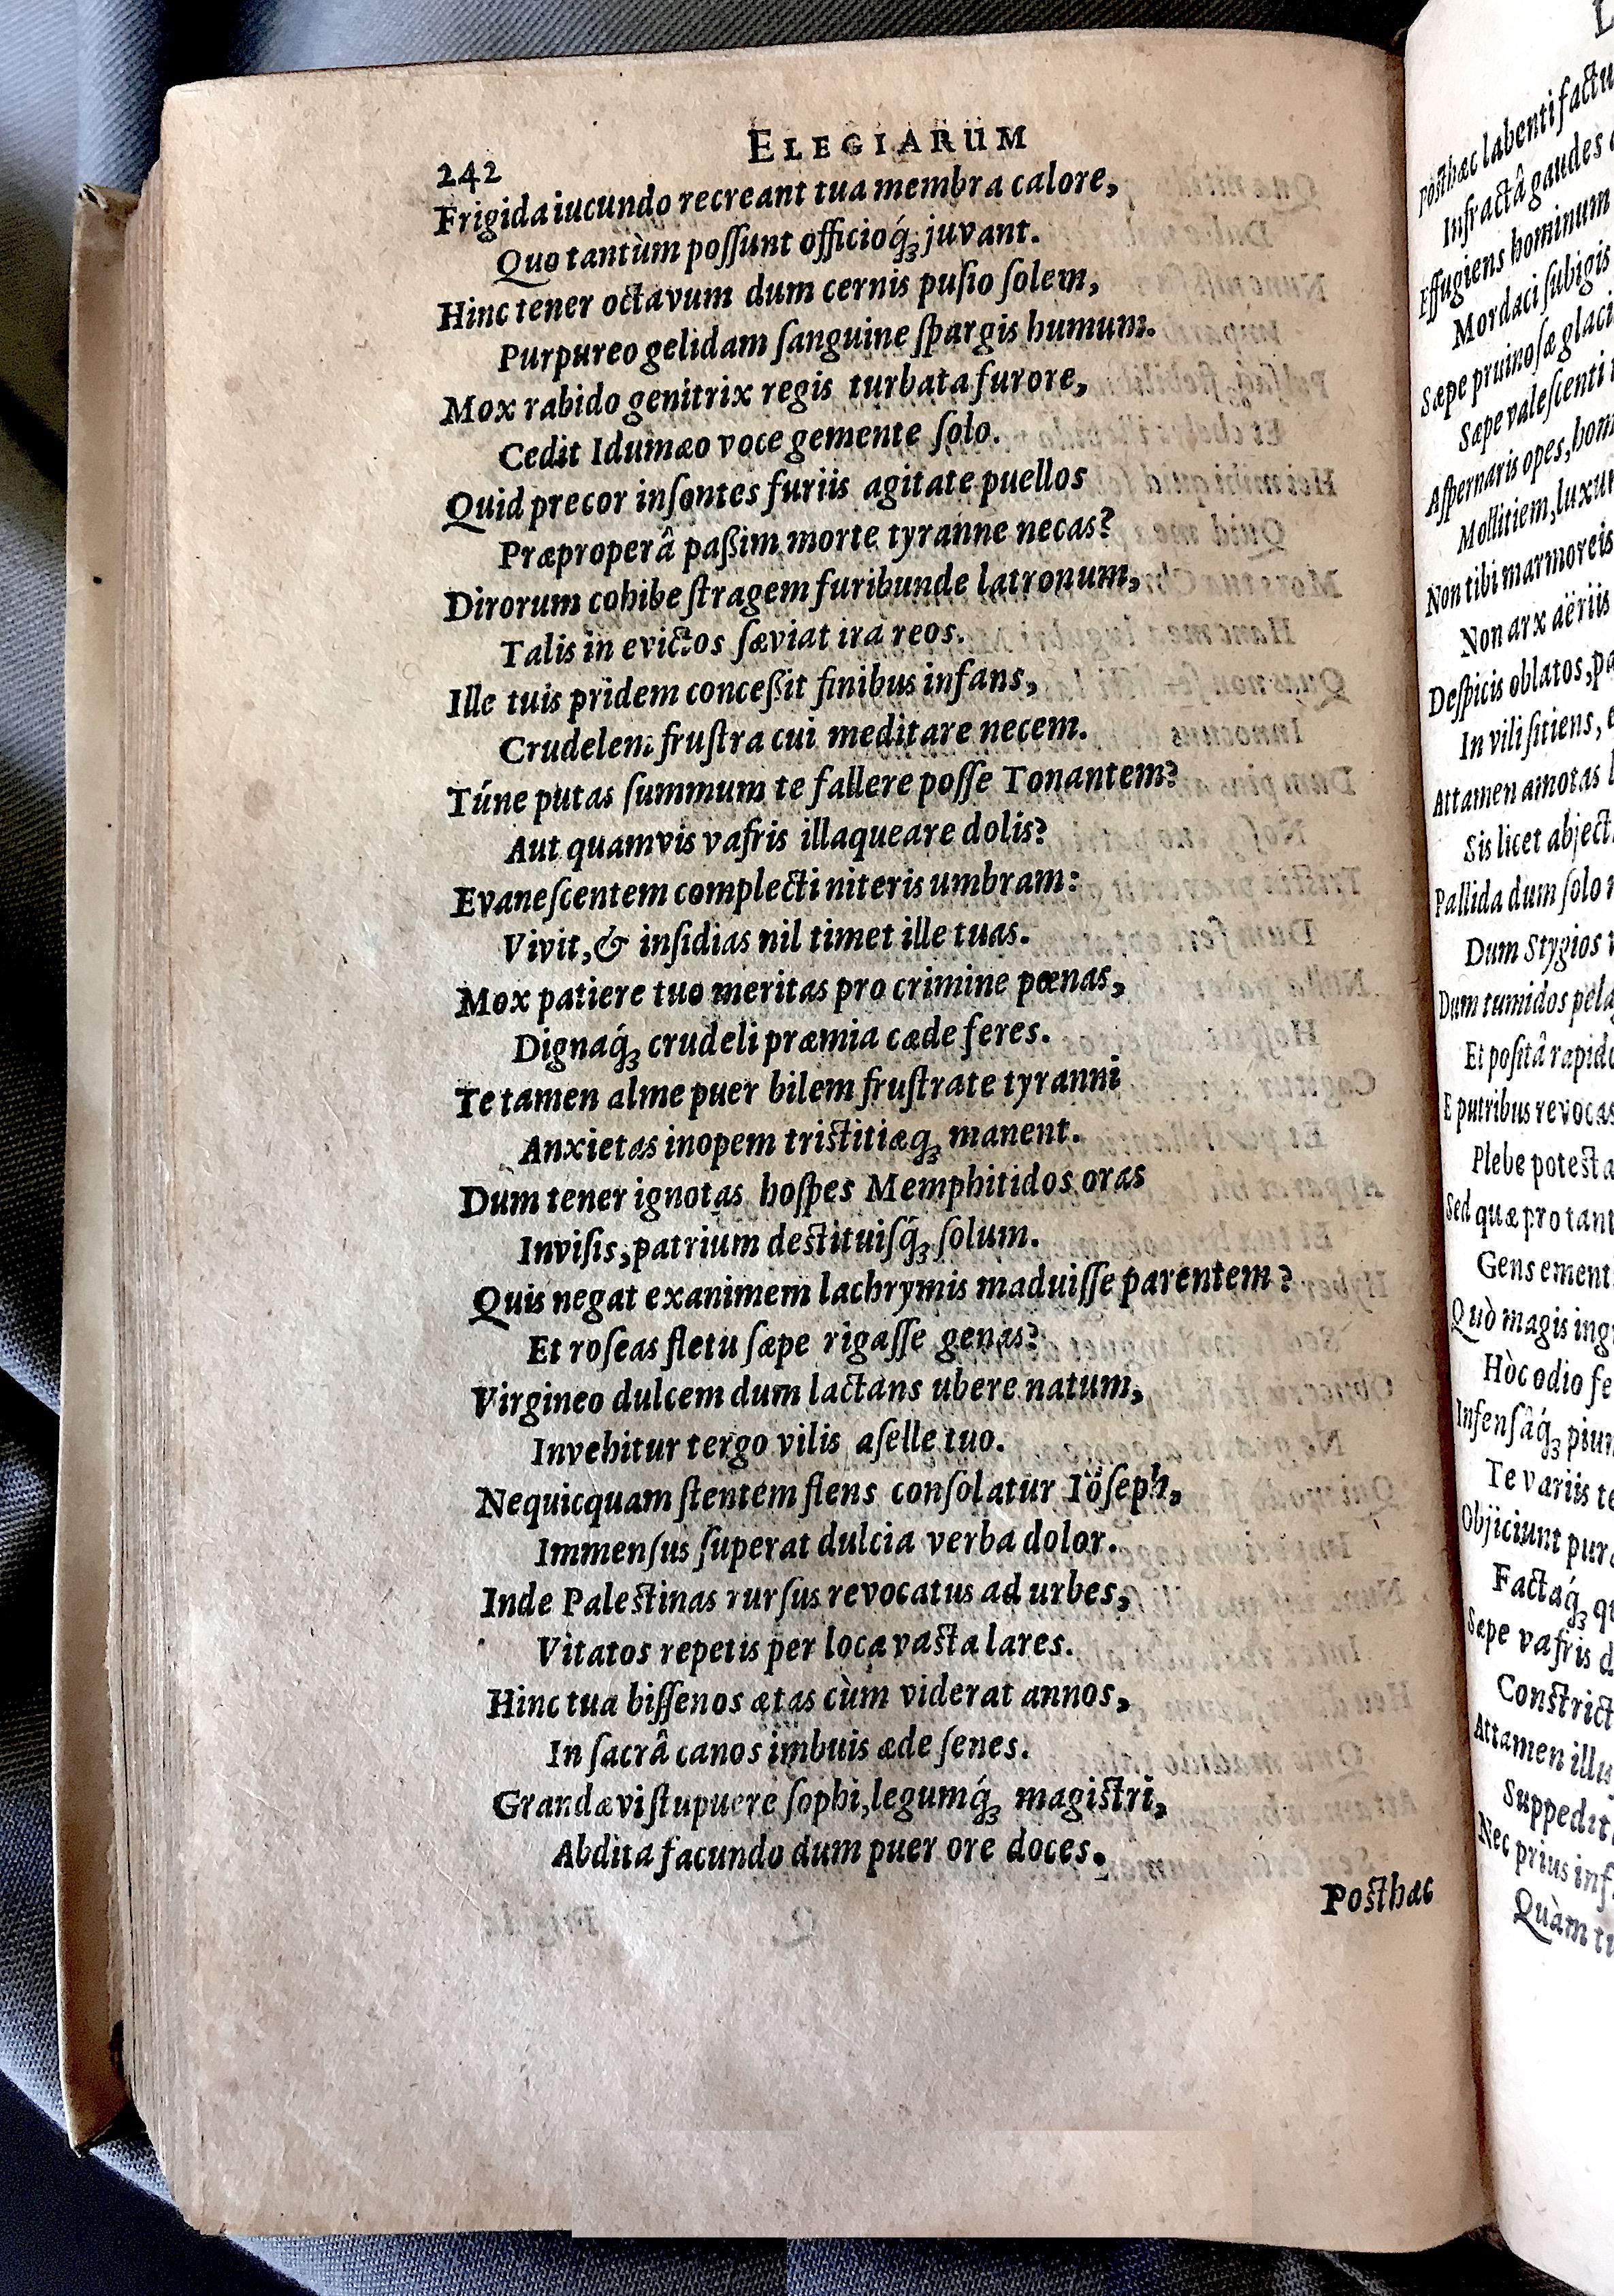 ELEGIARUM
242
Frigida iucundo recreant tua membra calore,
Quo tantùm poſſunt officioq́ꝫ juvant.
Hinc tener octavum dum cernis puſio ſolem,
Purpureo gelidam ſanguine ſpargis humum.
Mox rabido genitrix regis turbata furore,
Cedit Idumæo voce gemente ſolo.
Quid precor inſontes furiis agitate puellos
Præproperâ paßim morte tyranne necas?
Dirorum cohibe ſtragem furibunde latronum,
Talis in evictos ſæviat ira reos.
Ille tuis pridem conceßit finibus infans,
Crudelem fruſtra cui meditare necem.
Túne putas ſummum te fallere poſſe Tonantem?
Aut quamvis vafris illaqueare dolis?
Evaneſcentem complecti niteris umbram:
Vivit, & inſidias nil timet ille tuas.
Mox patiere tuo meritas pro crimine pœnas,
Dignaq́ꝫ crudeli præmia cæde feres.
Te tamen alme puer bilem fruſtrate tyranni
Anxietas inopem triſtitiæqꝫ manent.
Dum tener ignotas hoſpes Memphitidos oras
Inviſis, patrium deſtituiſq́ꝫ ſolum.
Quis negat exanimem lachrymis maduiſſe parentem?
Et roſeas fletu ſæpe rigaſſe genas?
Virgineo dulcem dum lactans ubere natum,
Invehitur tergo vilis aſelle tuo.
Nequicquam ſtentem flens conſolatur Ioſeph,
Immenſus ſuperat dulcia verba dolor.
Inde Paleſtinas rurſus revocatus ad urbes,
Vitatos repetis per loca vaſta lares.
Hinc tua biſſenos ætas cùm viderat annos,
In ſacrâ canos imbuis æde ſenes.
Grandævi ſtupuere ſophi, legumq́ꝫ magiſtri,
Abdita facundo dum puer ore doces.
Poſthac
Poſthac labenti factu
Infractâ gaudes
Effugiens hominum
Mordaci ſubigis
Sæpe pruinoſæ glaci
Sæpe valeſcenti
Aſpernaris opes, hom
Mollitiem, luxur
Non tibi marmoreis
Non arx aëriis
Deſpicis oblatos, pa
In vili ſitiens, e
Attamen amotas
Sis licet abject
Pallida dum ſolo
Dum Stygios
Dum tumidos pela
Et poſitâ rapido
E putribus revocas
Plebe poteſt a
Sed quæ pro tant
Gens ement
Quò magis ing
Hòc odio fe
Infenſâq́ꝫ pium
Te variis te
Objiciunt pura
Factaq́ꝫ qu
Sæpe vafris d
Conſtrict
Attamen illu
Suppedit
Nec prius inf
Quàm tu